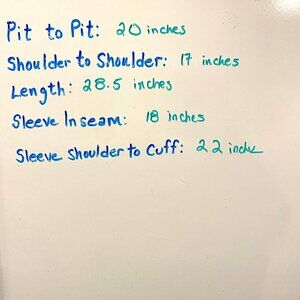 Pit to Pit: 20 inches
Shoulder to Shoulder: 17 inches
Length: 28.5 inches
Sleeve Inseam: 18 inches
Sleeve Shoulder to Cuff: 22 inches